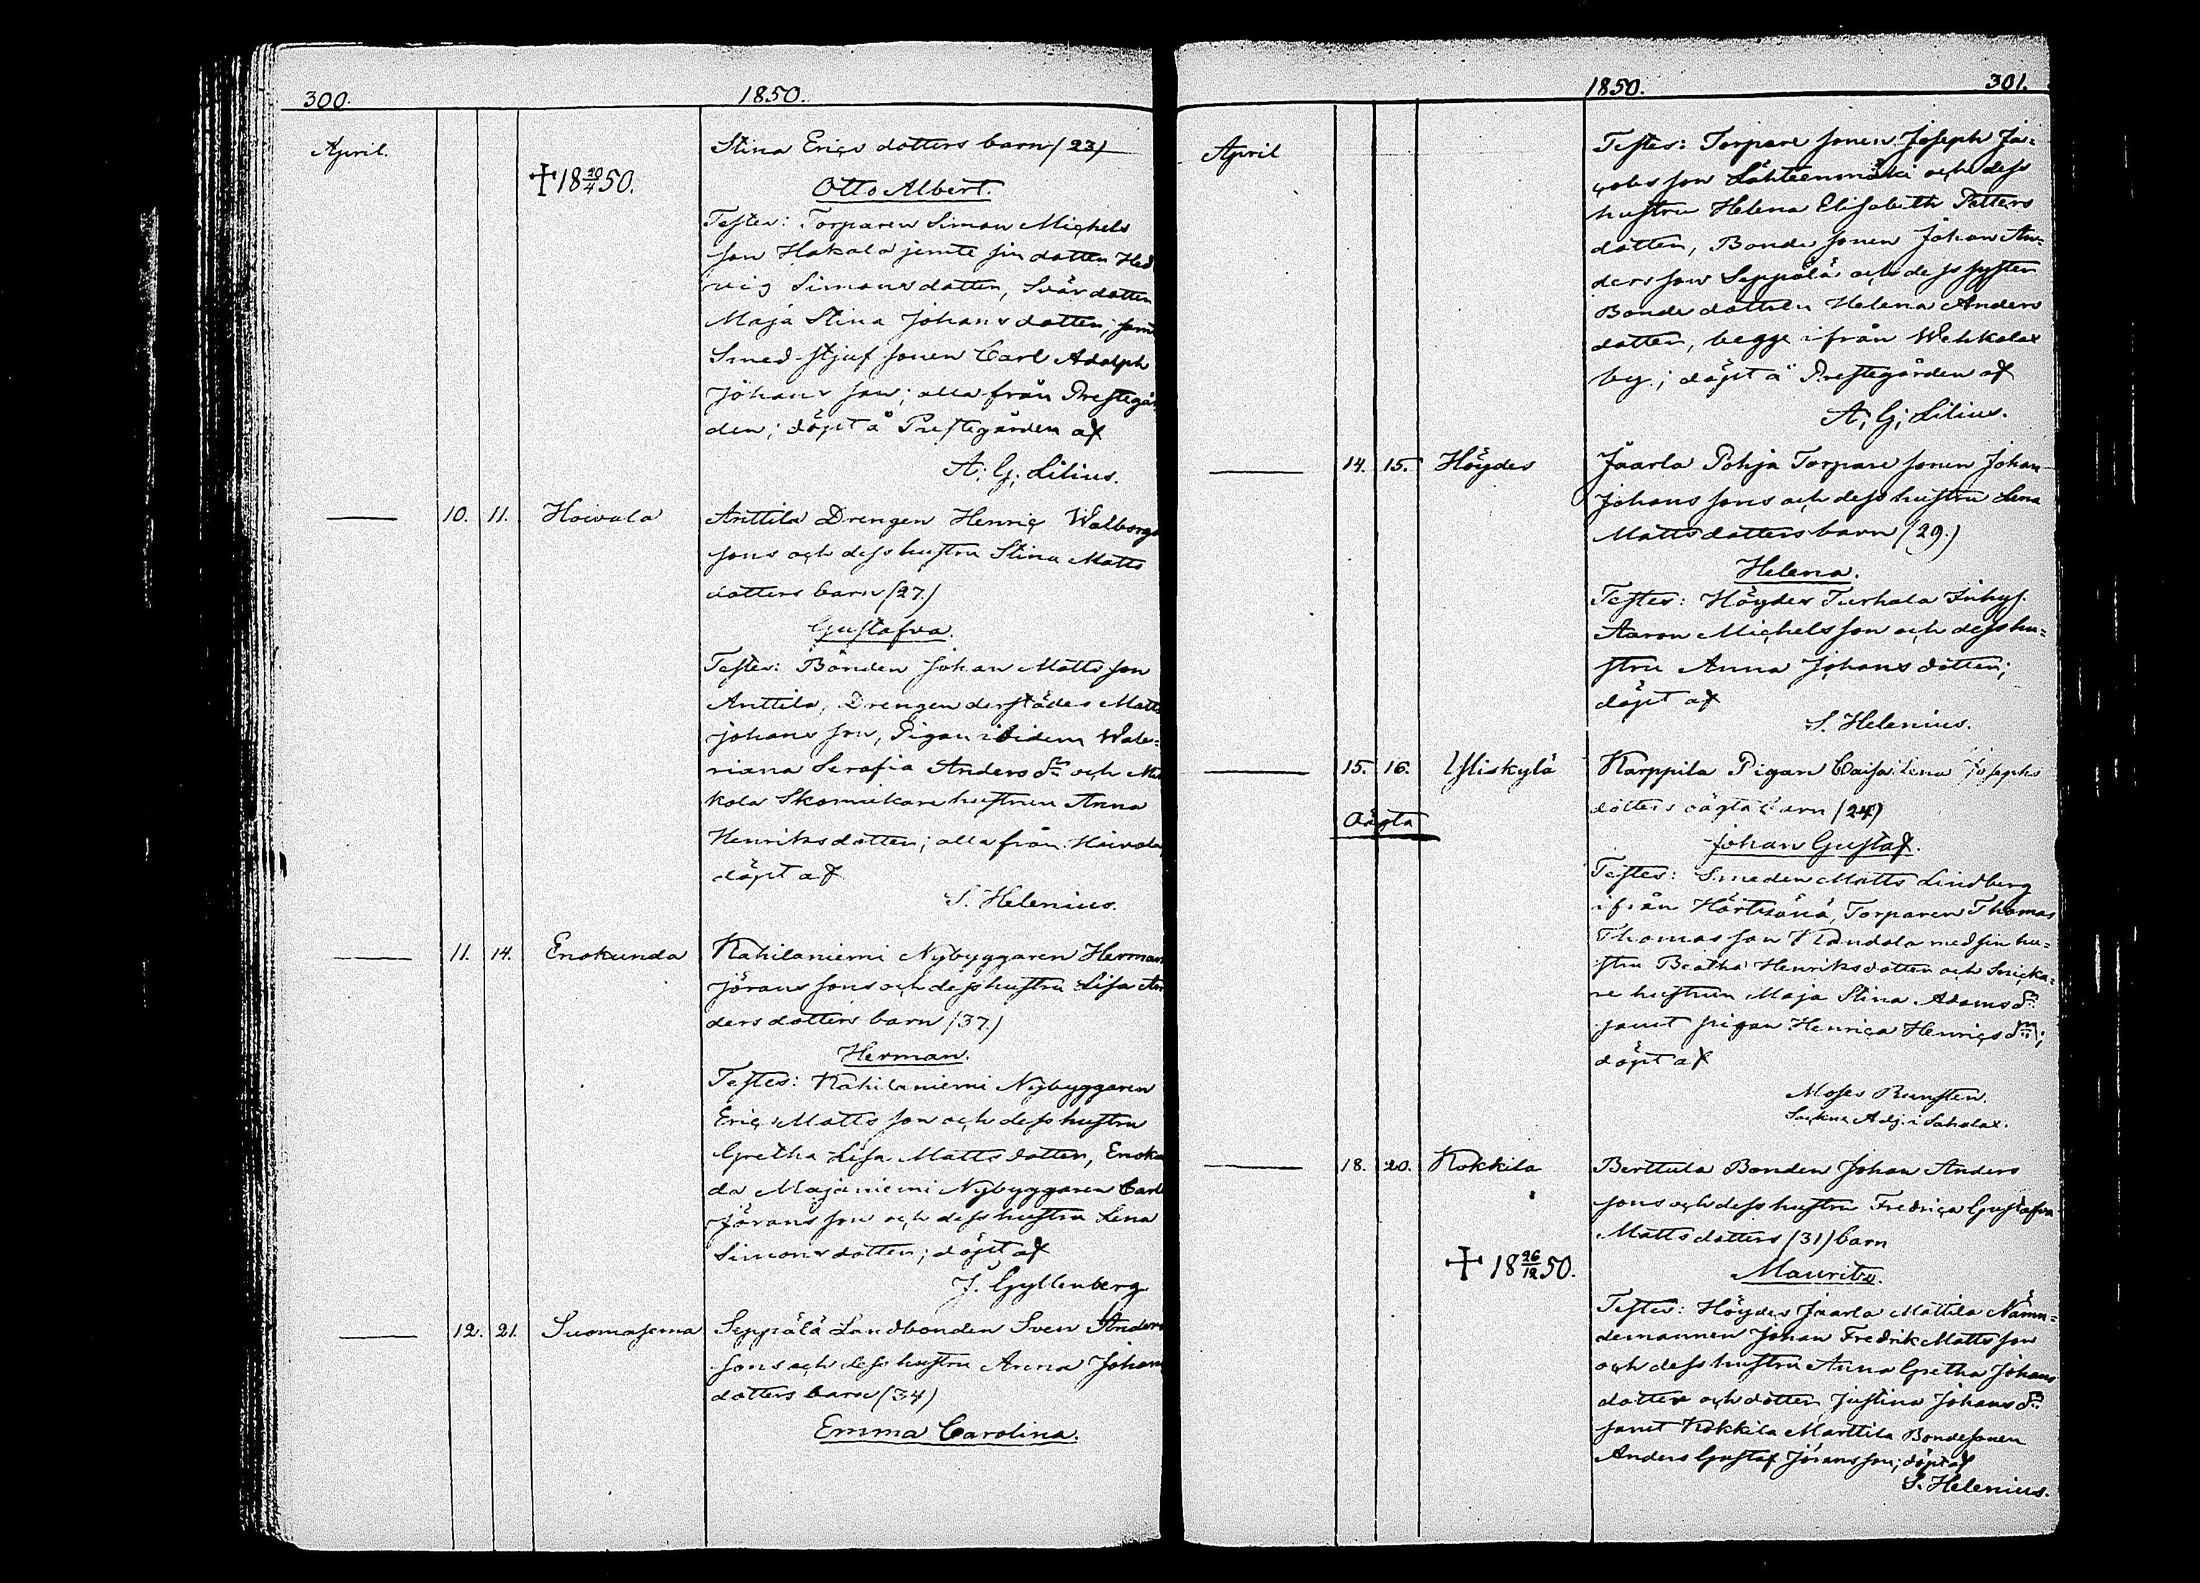 300.
1850.
April.
Stina Erics dotters barn (23)
✝18 20/4 50.
Otto Albert.
Testes: Torparen Simon Michels
son Hakala jemte sin dotter Hed
vig Simons dotter, Svärdotter
Maja Stina Johans dotter, samt
Smed-stjuf sonen Carl Adolph
Johans son; alla från Prestegår
den; döpt å Prestegården af
A. G. Lilius.
10. 11. Hoivala Anttila Drengen Henric Walborgs
sons och dess hustru Stina Matts
dotters barn (27.)
Gustafva.
Testes: Bonden Johan Matts son
Anttila, Drengen derstädes Matts
Johans son, Pigan ibidem Wale=
riana Serafia Anders dr och
kola Skomakare hustrun Anna
Henriks dotter; alla från Hoivala
döpt af
S. Helenius.
11. 14. Enokunda Kahilaniemi Nybyggaren Herman
Jörans sons och dess hustru Lisa An
ders dotters barn (37.)
Herman.
Testes: Kahilaniemi Nybyggaren
Eric Matts son och dess hustru
Gretha Lisa Matts dotter, Enokun
da Majaniemi Nybyggaren Carl
Jörans son och dess hustru Lena
Simons dotter; döpt af
J. Gyllenberg
12. 21. Suomasema Seppälä Landbonden Sven Anders
sons och dess hustru Anna Johans
dotters barn (34)
Emma Carolina.
1850.
301.
April
Testes: Torpare sonen Joseph Ja=
cobs son Lähteenmäki och dess
hustru Helena Elisabeth Petters
dotter, Bonde sonen Johan An=
ders son Seppälä och dess syster
Bonde dottren Helena Anders
dotter, begge ifrån Wehkalax
by; döpt å Prestegården af
A. G. Lilius.
14. 15. Höydes Jaarla Pohja Torpare sonen Johan
Johans sons och dess hustru Lena
Matts dotters barn (29.)
Helena.
Testes: Höydes Turhala Inhys.
Aaron Michels son och dess hu=
stru Anna Johans dotter;
döpt af
S. Helenius.
15. 16. Yliskylä Karppila Pigan Caisa Lena Josephs
dotters oägta barn (24)
Oägta
Johan Gustaf.
Testes: Smeden Matts Lindberg
ifrån Hörtsänä, Torparen Thomas
Thomas son Kandola med sin hu=
stru Beatha Henriks dotter och Snicka=
re hustrun Maja Stina Adams dr
samt pigan Henrica Henrics dr;
döpt af
Moses Runsten.
Sockne Adj. i Sahalax.
18. 20. Kokkila Berttula Bonden Johan Anders
sons och dess hustru Fredrica Gustafva
Matts dotters (31) barn
✝ 18 26/12 50.
Mauritz.
Testes: Höydes Jaarla Mattila Nämn=
demannen Johan Fredrik Matts son
och dess hustru Anna Gretha Johans
dotter och dotter Justina Johans dr
samt Kokkila Marttila Bondesonen
Anders Gustaf Jörans son; döpt af
S. Helenius.